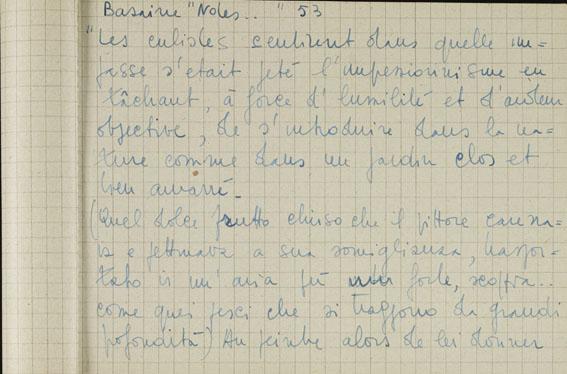 Bazaine "Notes.. " 53
"Les cubistes sentirent dans quelle im=
passe s'était jeté l'impressionnisme en
tâchant, à force d'humilité et d'ardeur
objective, de s'introduire dans la na=
ture comme dans un jardin clos et
bien amarré.
(Quel dolce frutto chiuso che il pittore carezza=
va e pettinava a sua somiglianza, traspor=
tato in un'aria più forte, scoppia..
come quei pesci che si traggono da grandi
profondità) Au peintre alors de lui donner